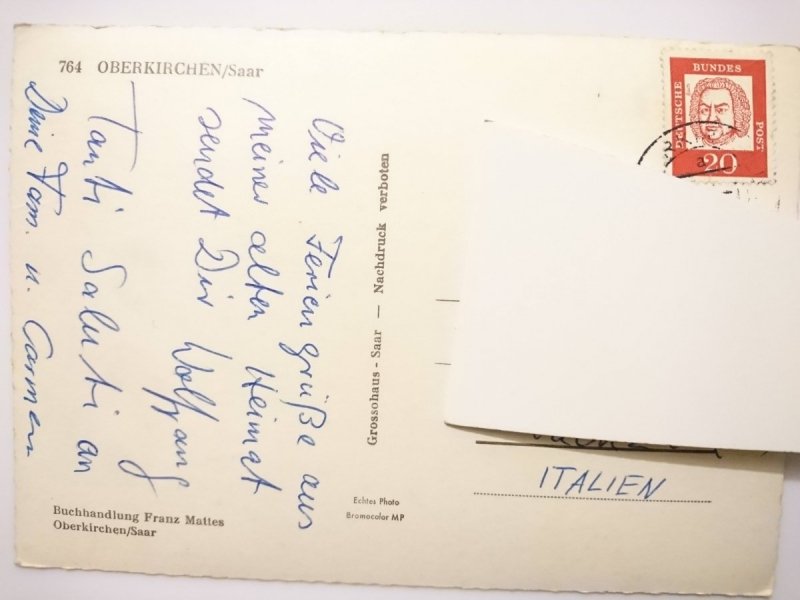 764 OBERKIRCHEN/Saar
Viele Feriengrüße aus
meiner alten Heimat
sendet Dir Wolfgang
Tanti Saluti an
Deine Fam. u. Carmen
Buchhandlung Franz Mattes
Oberkirchen/Saar
Grossohaus - Saar — Nachdruck verboten
Echtes Photo
Bromocolor MP
DEUTSCHE
BUNDES
POST
20
ITALIEN